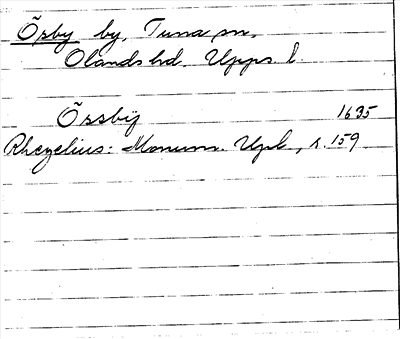 Öpby by, Tuna sn,
Olands hd. Upps. l.
Örsbÿ 1635
Rhezelius: Monum. Upl., s. 159